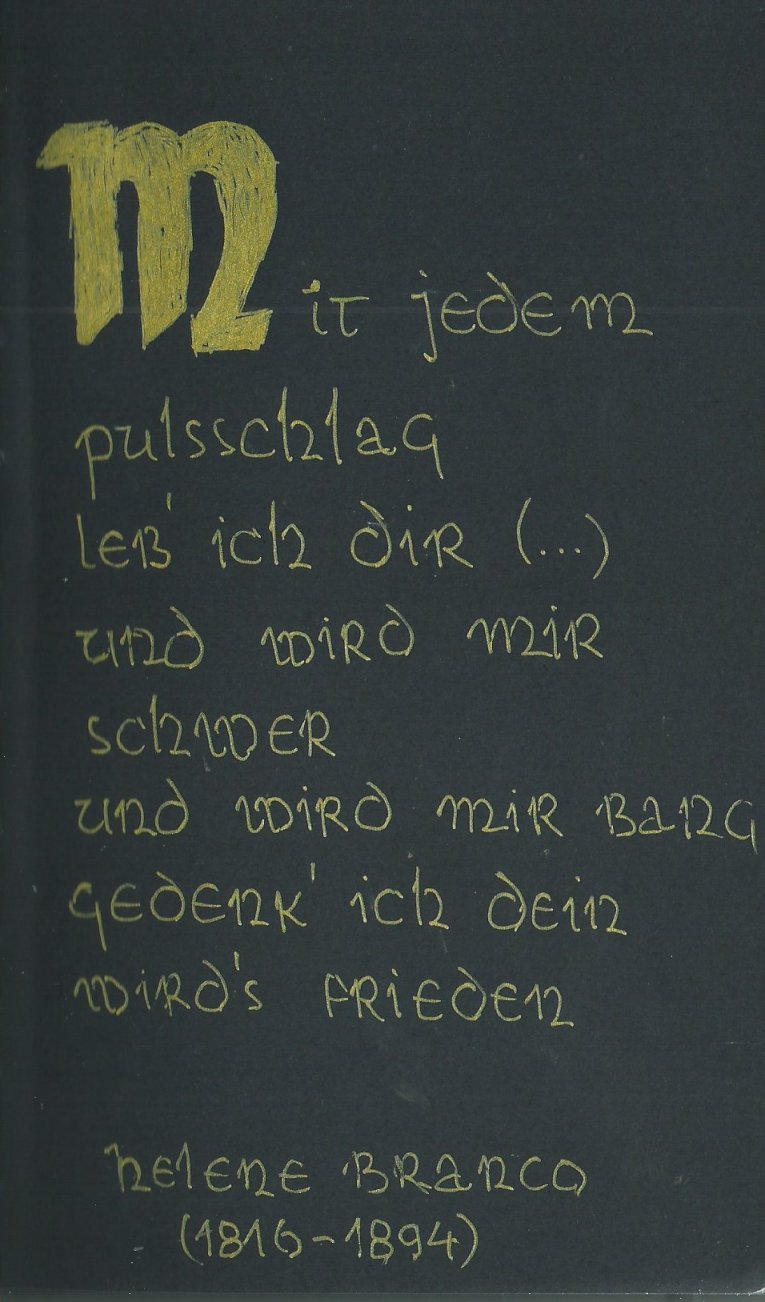 Mit jedem
pulsschlag
leb' ich dir (...)
und wird mir
schwer
und wird mir bang
gedenk' ich dein
wird's frieden
helene branco
(1816-1894)